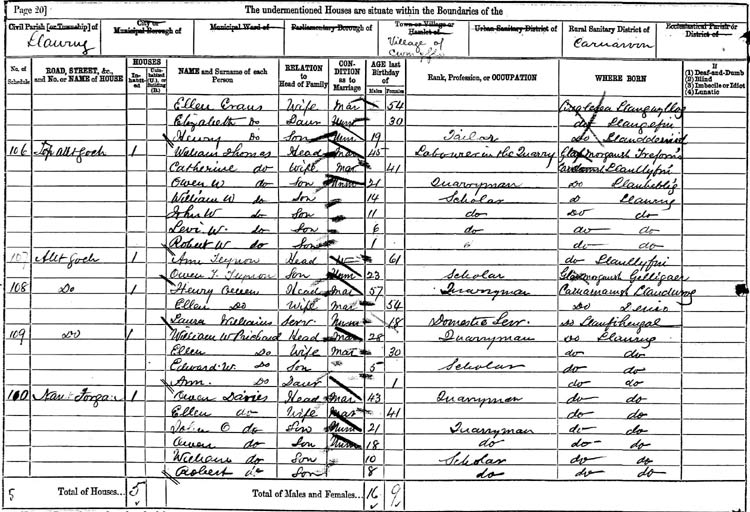 Page 20] The undermentioned Houses are situate within the Boundaries of the
Civil Parish [or Township] of City or Municipal Borough of Municipal Ward of Parliamentary Borough of Town or Village or Hamlet of Urban Sanitary District of Rural Sanitary District of Ecclesiastical Parish or District of
Llanrug Village of Carnarvon
No. of Schedule ROAD, STREET, &c., and No. or NAME of HOUSE HOUSES Inhabited Uninhabited (U.), or Building (B.) NAME and Surname of each Person RELATION to Head of Family CONDITION as to Marriage AGE last Birthday of Males Females Rank, Profession, or OCCUPATION WHERE BORN If (1) Deaf-and-Dumb (2) Blind (3) Imbecile or Idiot (4) Lunatic
Ellen Evans Wife Mar 54 Anglesea
Elizabeth Do Daur Unm 30 do Llangefni
Henry Do Son Unm 19 Tailor Do
106 Top Allt goch 1 William Thomas Head Mar 45 Labourer in the Quarry
Catherine do Wife Mar 41 Llanllyfni
Owen W do Son Unm 21 Quarryman Do Llanbeblig
William W do Son 14 Scholar Llanrug
John W do Son 11 do Do do
Levi W. do Son 6 do do
Robert W do Son 1 do do
107 Allt goch 1 Ann Head W 61 do Llanllyfni
Owen Son Unm 23 Scholar Glamorgansh Gelligaer
108 Do 1 Henry Owen Head Mar 57 Quarryman
Ellen Do Wife Mar 54 Do
Laura Williams Serv Unm 18 Domestic Serv Do Llanfihangel
109 Do 1 William W Prichard Head Mar 28 Quarryman Do Llanrug
Ellen Do Wife Mar 30 do do
Edward W. Do Son 5 Scholar do do
Ann Do Daur 1 do do
110 Nant 1 Owen Davies Head Mar 43 Quarryman do do
Ellen do Wife Mar 41 do do
John O do Son Unm 21 Quarryman do do
Owen do Son Unm 18 do do do
William do Son 10 Scholar do do
Robert do Son 8 do do do
5 Total of Houses... 5 Total of Males and Females... 16 9